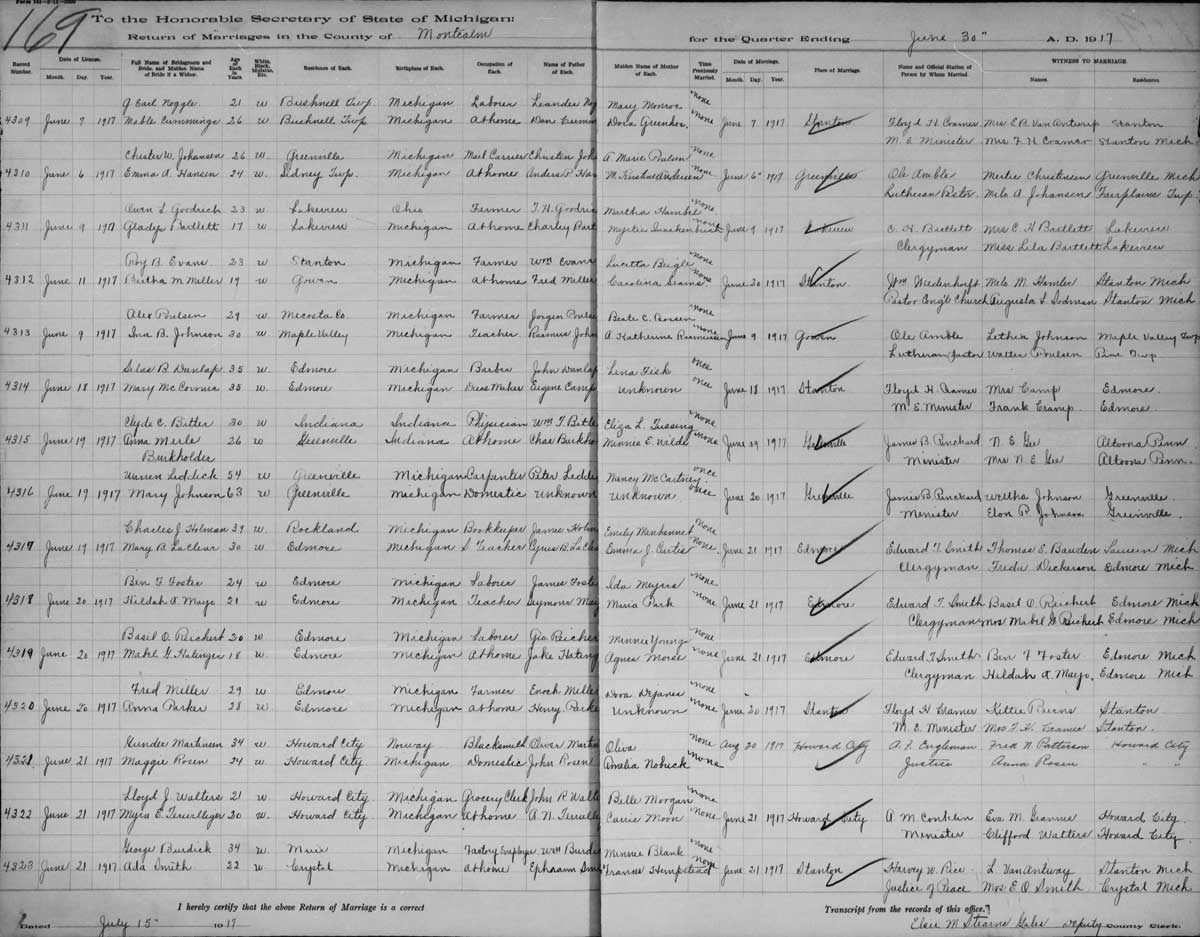 169
To the Honorable Secretary of State of Michigan:
Return of Marriages in the County of Montcalm for the Quarter Ending June 30" A. D. 1917
Record Number. Date of License. Month. Day. Year. Full Name of Bridegroom and Bride, and Maiden Name of Bride if a Widow. Age of Each in Years White, Black, Mulatto, Etc. Residence of Each. Birthplace of Each. Occupation of Each. Name of Father of Each. Maiden Name of Mother of Each. Time Previously Married. Date of Marriage. Month. Day. Year. Place of Marriage. Name and Official Station of Person by Whom Married. WITNESS TO MARRIAGE Names. Residences
J Earl Noggle 21 w Bushnell Twp. Michigan Laborer Leander Nog Mary Monroe none
4309 June 7 1917 Mable Cummings 26 w Bushnell Twp Michigan At home Dan Cumm Dora Greenhoe none June 7 1917 Stanton Floyd H Cramer Mrs E B Van Antwerp Stanton
M. E Minister Mrs F H Cramer Stanton Mich
Chester W. Johansen 26 w. Greenville Michigan Mail Carrier Christen Joh A Marie Paulsen none
4310 June 6 1917 Emma A. Hansen 24 w. Sidney Twp. Michigan At home Anders P Han M Kirstine Andersen none June 6" 1917 Greenville Ole Amble Mertie Christensen Greenville Mich
Lutheran Pastor Milo A Johansen Fairplains Twp.
Owen L Goodrich 23 w. Lakeview Ohio Farmer T. H. Goodric Martha Hambel none
4311 June 9 1917 Gladys Bartlett 17 w Lakeview Michigan At home Charley Bart Myrtie Quackenbush none June 9 1917 Lakeview C. H. Bartlett Mrs C H Bartlett Lakeview
Clergyman Miss Lila Bartlett Lakeview
Roy B. Evans 23 w Stanton Michigan Farmer Wm Evans Lucetta Beigle none
4312 June 11 1917 Bertha M Miller 19 w Gowen Michigan At home Fred Miller Carolina none June 20 1917 Stanton Wm Wiedenhoeft Milo M. Hamler Stanton Mich
Pastor Cong'l Church Augusta L Dodman Stanton Mich
Alex Paulsen 29 w Mecosta Co. Michigan Farmer Jorgen Pouls Beate C. none
4313 June 9 1917 Ina B. Johnson 30 w. Maple Valley Michigan Teacher Rasmus John A Katherine Rasmussen none June 9 1917 Gowen Ole Amble Lethea Johnson Maple Valley Twp
Lutheran Pastor Walter Poulsen Pine Twp.
Silas B Dunlap 35 w. Edmore Michigan Barber John Dunlap Lena Fisk once
4314 June 18 1917 Mary McCormic 35 w. Edmore Michigan Dress Maker Eugene Camp Unknown once June 18 1917 Stanton Floyd H. Cramer Mrs Camp Edmore.
M. E. Minister Frank Cramp. Edmore.
Clyde C. Bitler 30 w Indiana Indiana Physician Wm F Bitle Eliza L. none
4315 June 19 1917 Anna Merle Burkholder 26 w Greenville Indiana At home Chas Burkho Minnie E. Wilde none June 19 1917 Greenville James B. Pinckard N. E Gee Altoona Penn
Minister Mrs N. E Gee Altoona Penn.
Warren Liddick 54 w Greenville Michigan Carpenter Peter Liddi Nancy McCartney once
4316 June 19 1917 Mary Johnson 63 w Greenville Michigan Domestic Unknown Unknown once June 20 1917 Greenville James B. Pinckard Johnson Greenville.
Minister Elon P. Johnson Greenville.
Charles J Holman 39 w. Rockland Michigan Bookkeeper James Holm Emily none
4317 June 19 1917 Mary B. LaClear 30 w Edmore Michigan S Teacher Cyrus B. LaCle Emma J Curtis none. June 21 1917 Edmore Edward T. Smith Thomas E. Bawden Mich
Clergyman Freda Dickerson Edmore Mich
Ben F Foster 24 w Edmore Michigan Laborer James Foste Ida Meyers none
4318 June 20 1917 Hildah A Mayo 21 w Edmore Michigan Teacher Seymour May Maria Park none June 21 1917 Edmore Edward T. Smith Basil O Reichert Edmore Mich
Clergyman Mrs Mabel G Reichert Edmore Mich
Basil O. Reichert 20 w Edmore Michigan Laborer Geo Reicher Minnie Young none
4319 June 20 1917 Mabel G. Hatinger 18 w. Edmore Michigan At home Jake Hating Agnes Morse none June 21 1917 Edmore Edward T Smith Ben F Foster Edmore Mich
Clergyman Hildah A Mayo Edmore Mich
Fred Miller 29 w Edmore Michigan Farmer Enoch Mille Dora none
4320 June 20 1917 Anna Parker 28 w Edmore Michigan At home Henry Parke Unknown none June 20 1917 Stanton Floyd H Cramer Kittie Burns Stanton
M. E Minister Mrs F. H. Cramer Stanton.
Gunder Martinsen 34 w. Howard City Norway Blacksmith Oliver Martin Oliva none Aug 20 1917 Howard City A. F. Engleman Fred N. Patterson Howard City
4321 June 21 1917 Maggie Rosen 24 w Howard City Michigan Domestic John Rosen Amelia Nobuck none Justice Anna Rosen " "
Lloyd J Walters 21 w Howard City. Michigan Grocery Clerk John R Walte Belle Morgan none
4322 June 21 1917 Myra E. Terwilleger 20 w. Howard City Michigan At home A. N. Terwille Carrie Moon none June 21 1917 Howard City A. M. Conklin Eva M. Grannis Howard City.
Minister Clifford Watters Howard City
George Burdick 34 w. Muir Michigan Factory Employee Wm Burdic Minnie Blank none
4323 June 21 1917 Ada Smith 22 w Crystal Michigan At home Ephraim Smi Francis Hempstead none June 21 1917 Stanton Harvey W. Rice L VanAntway Stanton Mich
Justice of Peace Mrs E. O Smith Crystal Mich
I hereby certify that the above Return of Marriage is a correct Transcript from the records of this office."
Dated July 15" 1917 Elsie M Stearns Gales Deputy County Clerk.